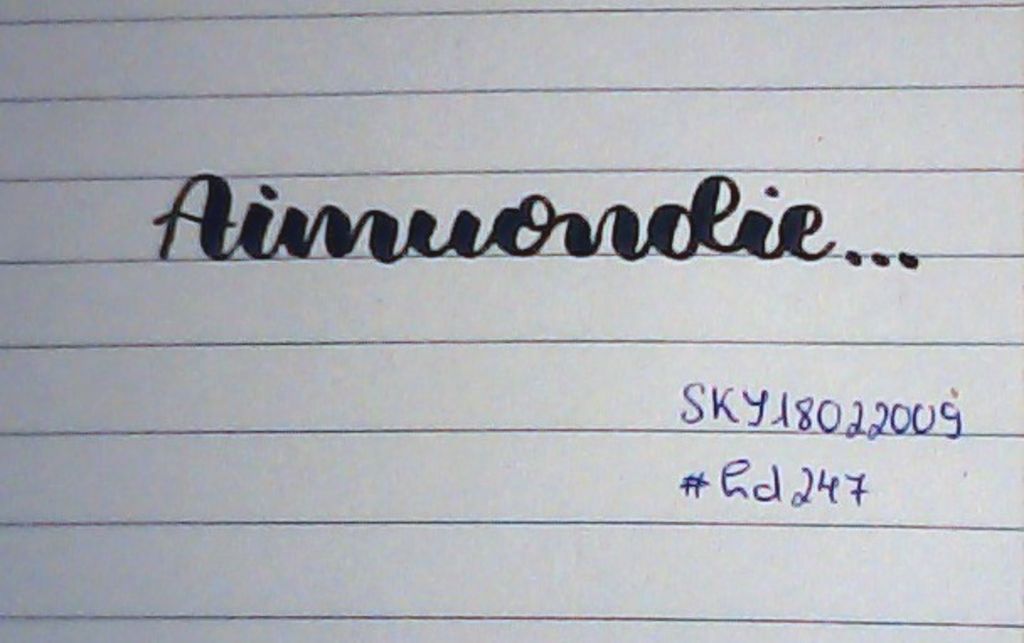 Aimuondie...
SKY18022009
#hd247